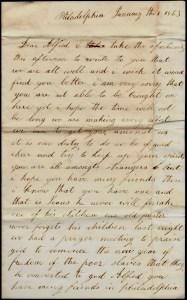 Philadelphia January the 1 1863
Dear Alfred I take the opportunity
this afternoon to write to you that
we are all well and i wish it would
find you better i am very sorry that
you are not able to be brought
here yet i hope the time will not
be long we are making every effort
we can to get you amongst us
it is our duty to do so be of good
cheer and try to keep up your spirits
you are all amongst strangers but
i hope you have many friends there
i know that you have one and
that is Jesus he never will forsake
one of his children our old master
never forgets his children last night
we had a prayer meeting to praise
god to commence the new year
freedom of the poor slaves that they
be converted to god Alfred you
have many friends in Philadelphia